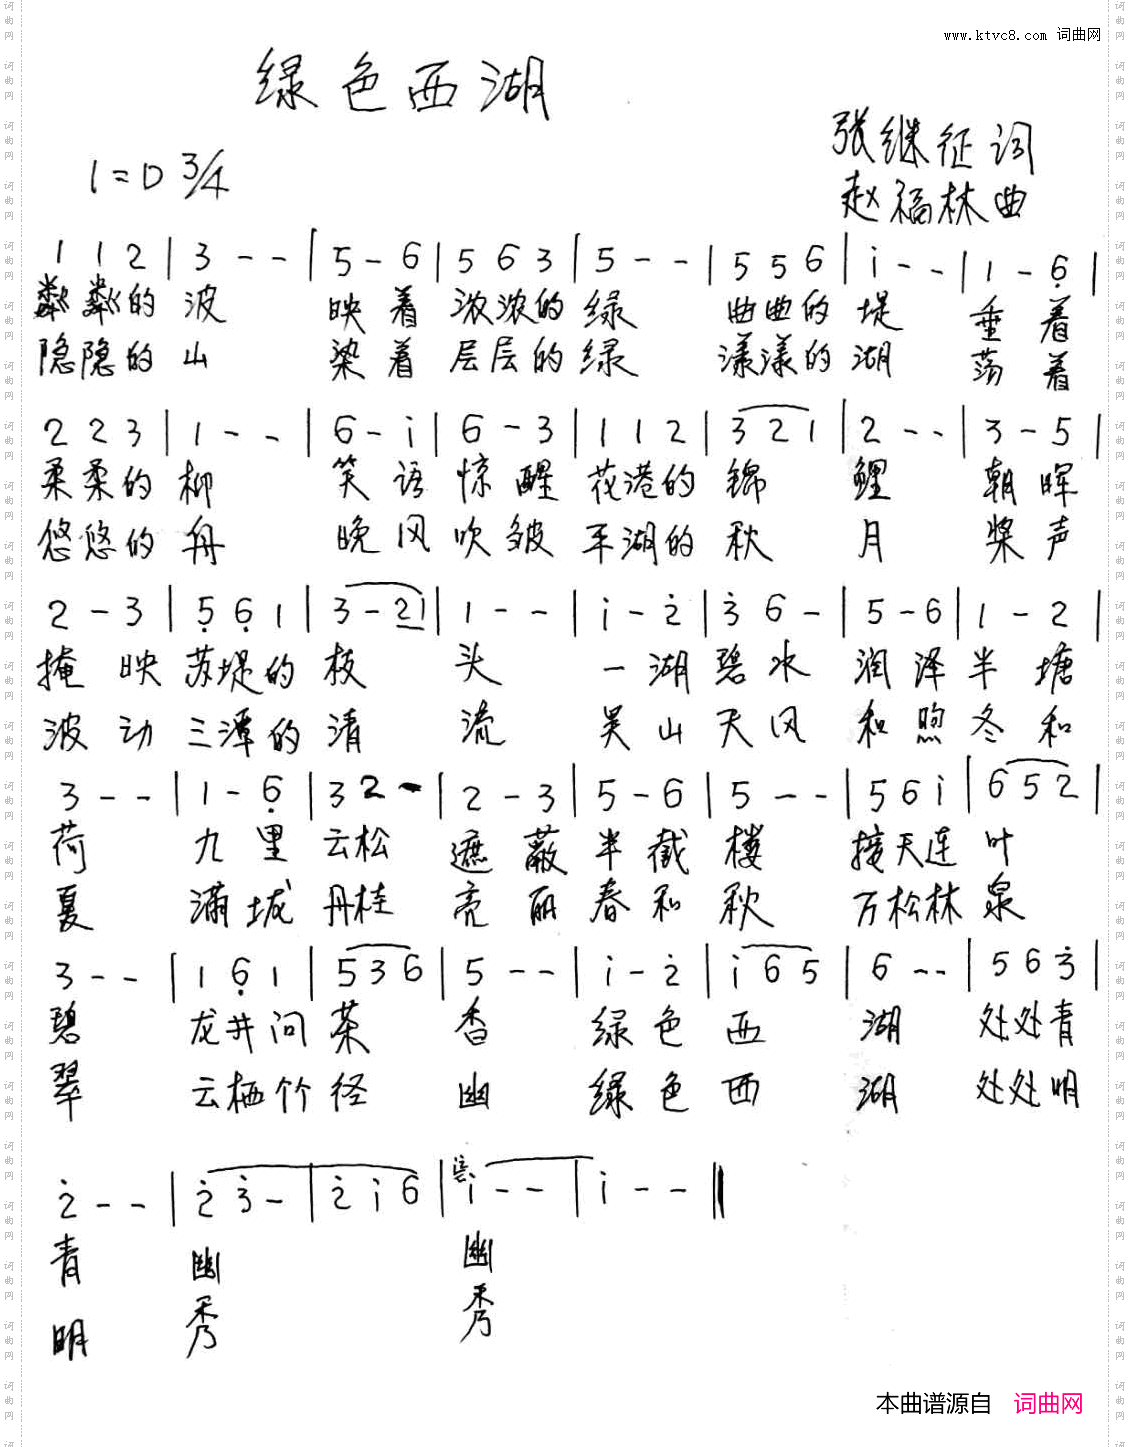 www.ktvc8.com 词曲网
绿色西湖
张继征词
1=D 3/4
赵福林曲
1 1 2 | 3 - - | 5 - 6 | 5 6 3 | 5 - - | 5 5 6 | i - - | 1 - 6̣ |
粼粼的 波 映着 浓浓的 绿 曲曲的 堤 垂着
隐隐的 山 染着 层层的 绿 漾漾的 湖 荡着
2 2 3 | 1 - - | 6 - i | 6 - 3 | 1 1 2 | 3 2 1 | 2 - - | 3 - 5 |
柔柔的 柳 笑语 惊醒 花港的 锦 鲤 朝晖
悠悠的 舟 晚风 吹皱 平湖的 秋 月 桨声
2 - 3 | 5̣ 6̣ 1 | 3 - 2 1 | 1 - - | i - 2̇ | 3̇ 6 - | 5 - 6 | 1 - 2 |
掩映 苏堤的 枝 头 一湖 碧水 润泽 半塘
波动 三潭的 清 流 吴山 天风 和煦 冬和
3 - - | 1 - 6̣ | 3 2 - | 2 - 3 | 5 - 6 | 5 - - | 5 6 i | 6 5 2 |
荷 九里 云松 遮蔽 半截 楼 接天连 叶
夏 满城 丹桂 亮丽 春和 秋 万松林 泉
3 - - | 1 6̣ 1 | 5 3 6 | 5 - - | i - 2̇ | i 6 5 | 6 - - | 5 6 3̇ |
碧 龙井问 茶 香 绿色 西 湖 处处青
翠 云栖竹 径 幽 绿色 西 湖 处处明
2̇ - - | 2̇ 3̇ - | 2̇ i 6 | i - - | i - - ‖
青 幽 幽
明 秀 秀
本曲谱源自 词曲网